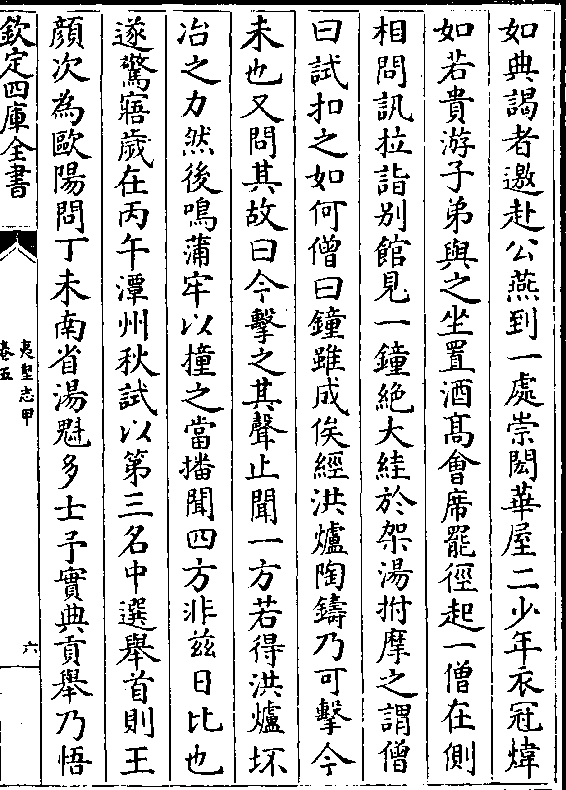 如典謁者邀赴公燕到一處崇閎華屋二少年衣冠煒
如若貴游子弟與之坐置酒髙會席罷徑起一僧在側
相問訊拉詣别館見一鐘絶大絓於架湯拊摩之謂僧
曰試扣之如何僧曰鐘雖成俟經洪爐陶鑄乃可擊今
未也又問其故曰今擊之其聲止聞一方若得洪爐坏
冶之力然後鳴蒲牢以撞之當播聞四方非兹日比也
遂驚寤歲在丙午潭州秋試以第三名中選舉首則王
顔次為歐陽問丁未南省湯魁多士予實典貢舉乃悟
欽定四庫全書
夷堅志甲
卷五
六